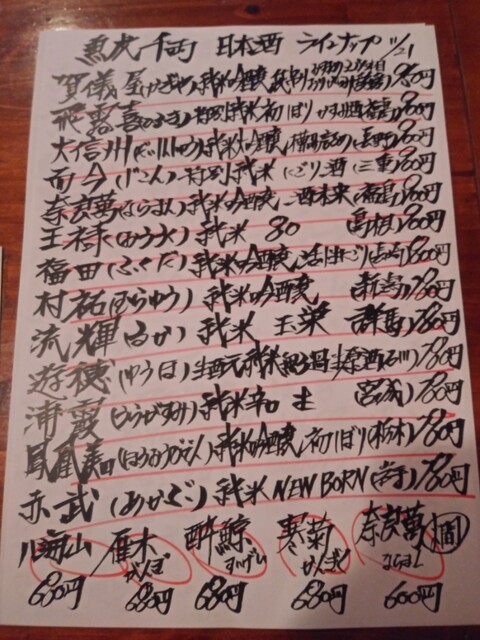 魚虎千両 日本酒 ラインナップ 11/21
賀儀屋(かぎや)純米吟醸 800円
飛露喜(ひろき)特別純米 初しぼり 800円
大信州(だいしんしゅう)純米大吟醸 (長野)800円
而今(じこん)特別純米 にごり酒(三重)800円
奈良萬(ならまん)純米吟醸 酒未来(福島)800円
王祿(おうろく)純米 80 島根)800円
福田(ふくだ)純米吟醸 活性にごり(長崎)800円
村祐(むらゆう)純米吟醸 新潟)780円
流輝(るか)純米 玉栄 群馬)780円
遊穂(ゆうほ)生酛純米 生原酒(石川)780円
浦霞(うらがすみ)純米辛口 宮城)780円
鳳凰美田(ほうおうびでん)純米吟醸 初しぼり(栃木)780円
赤武(あかぶ)純米 NEW BORN (岩手)780円
八海山 雁木 がんぎ 酔鯨 すいげい 寒菊 かんぎく 奈良萬 ならまん
680円 680円 680円 680円 600円